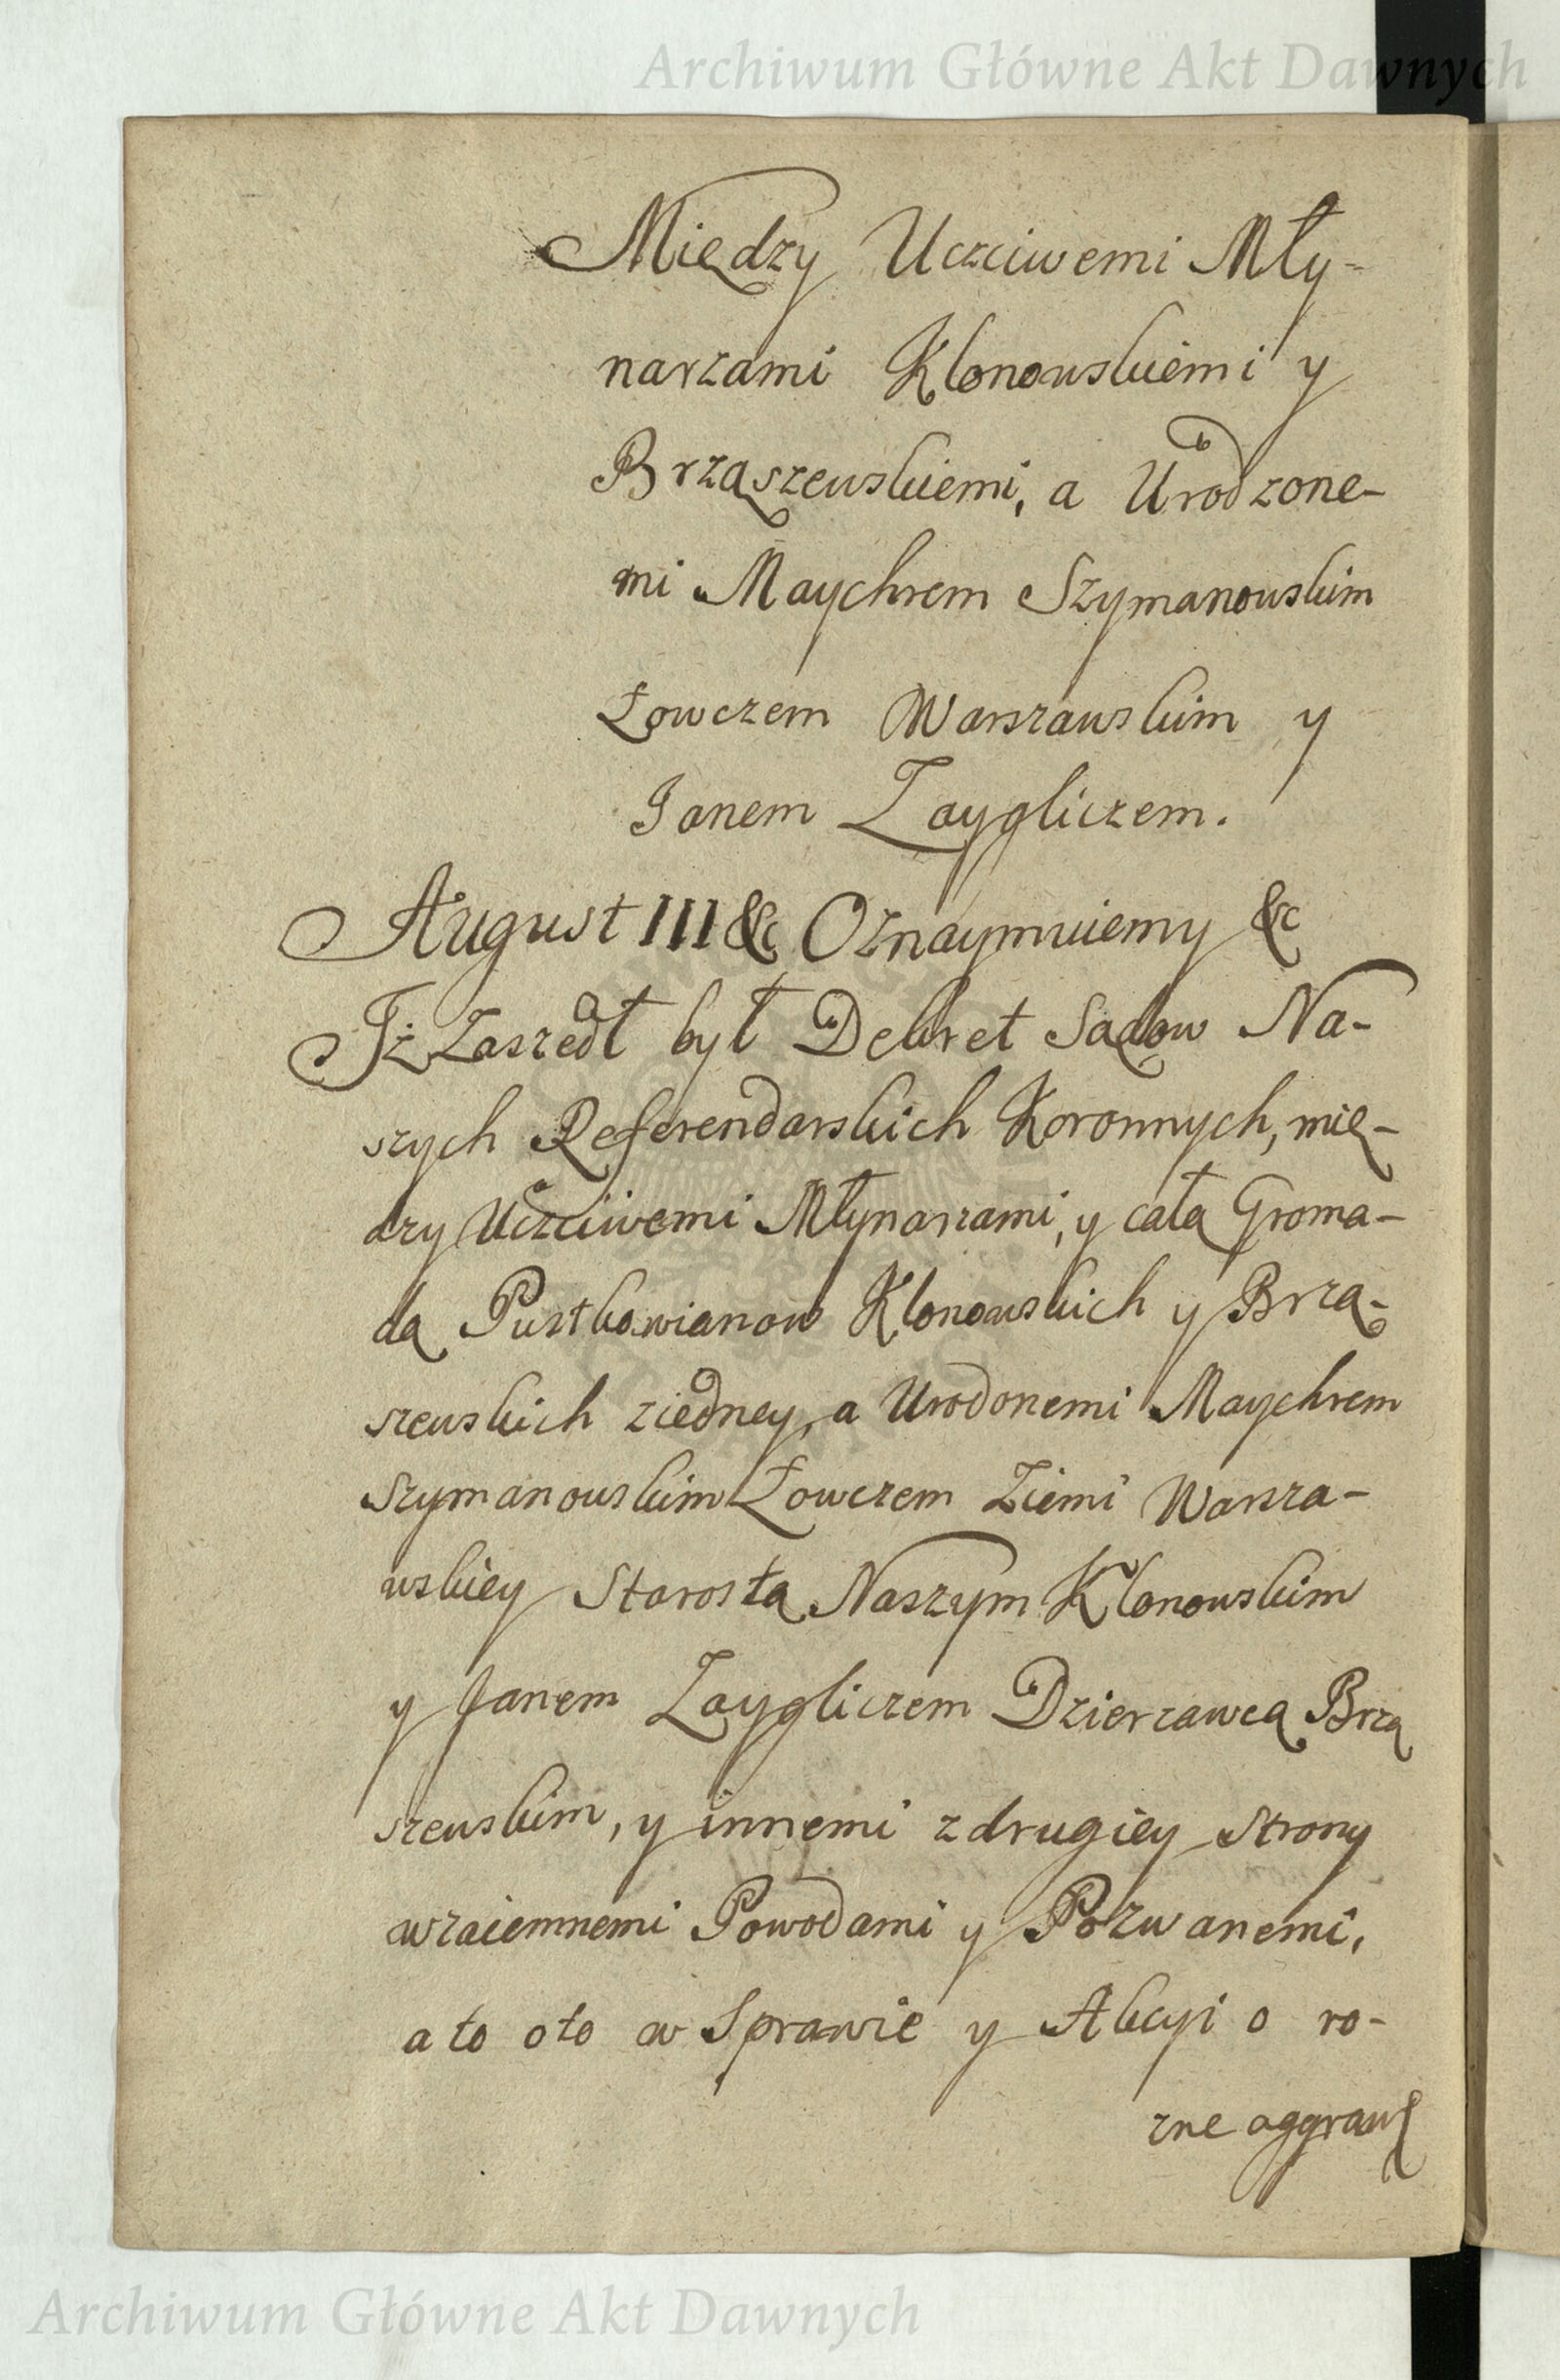 Archiwum Główne Akt Dawnych
Między Uczciwemi Mły-
narzami Klonowskiemi y
Brząszewskiemi, a Urodzone-
mi Maychrem Szymanowskim
Łowczem Warszawskim y
Janem Zaygliczem.
August III &c Oznaymuiemy &c
Iż Zaszedł był Dekret Sądow Na-
szych Referendarskich Koronnych, mię-
dzy Uczciwemi Młynarzami, y całą Groma-
dą Pustkowianow Klonowskich y Brzą-
szewskich ziedney, a Urodonemi Maychrem
Szymanowskim Łowczem Ziemi Warsza-
wskiey Starostą Naszym Klonowskim
y Janem Zaygliczem Dzierzawcą Brzą
szewskim, y innemi z drugiey Strony
wzaiemnemi Powodami y Pozwanemi,
a to oto w Sprawie y Akcyi o ro-
zne aggraw
Archiwum Główne Akt Dawnych